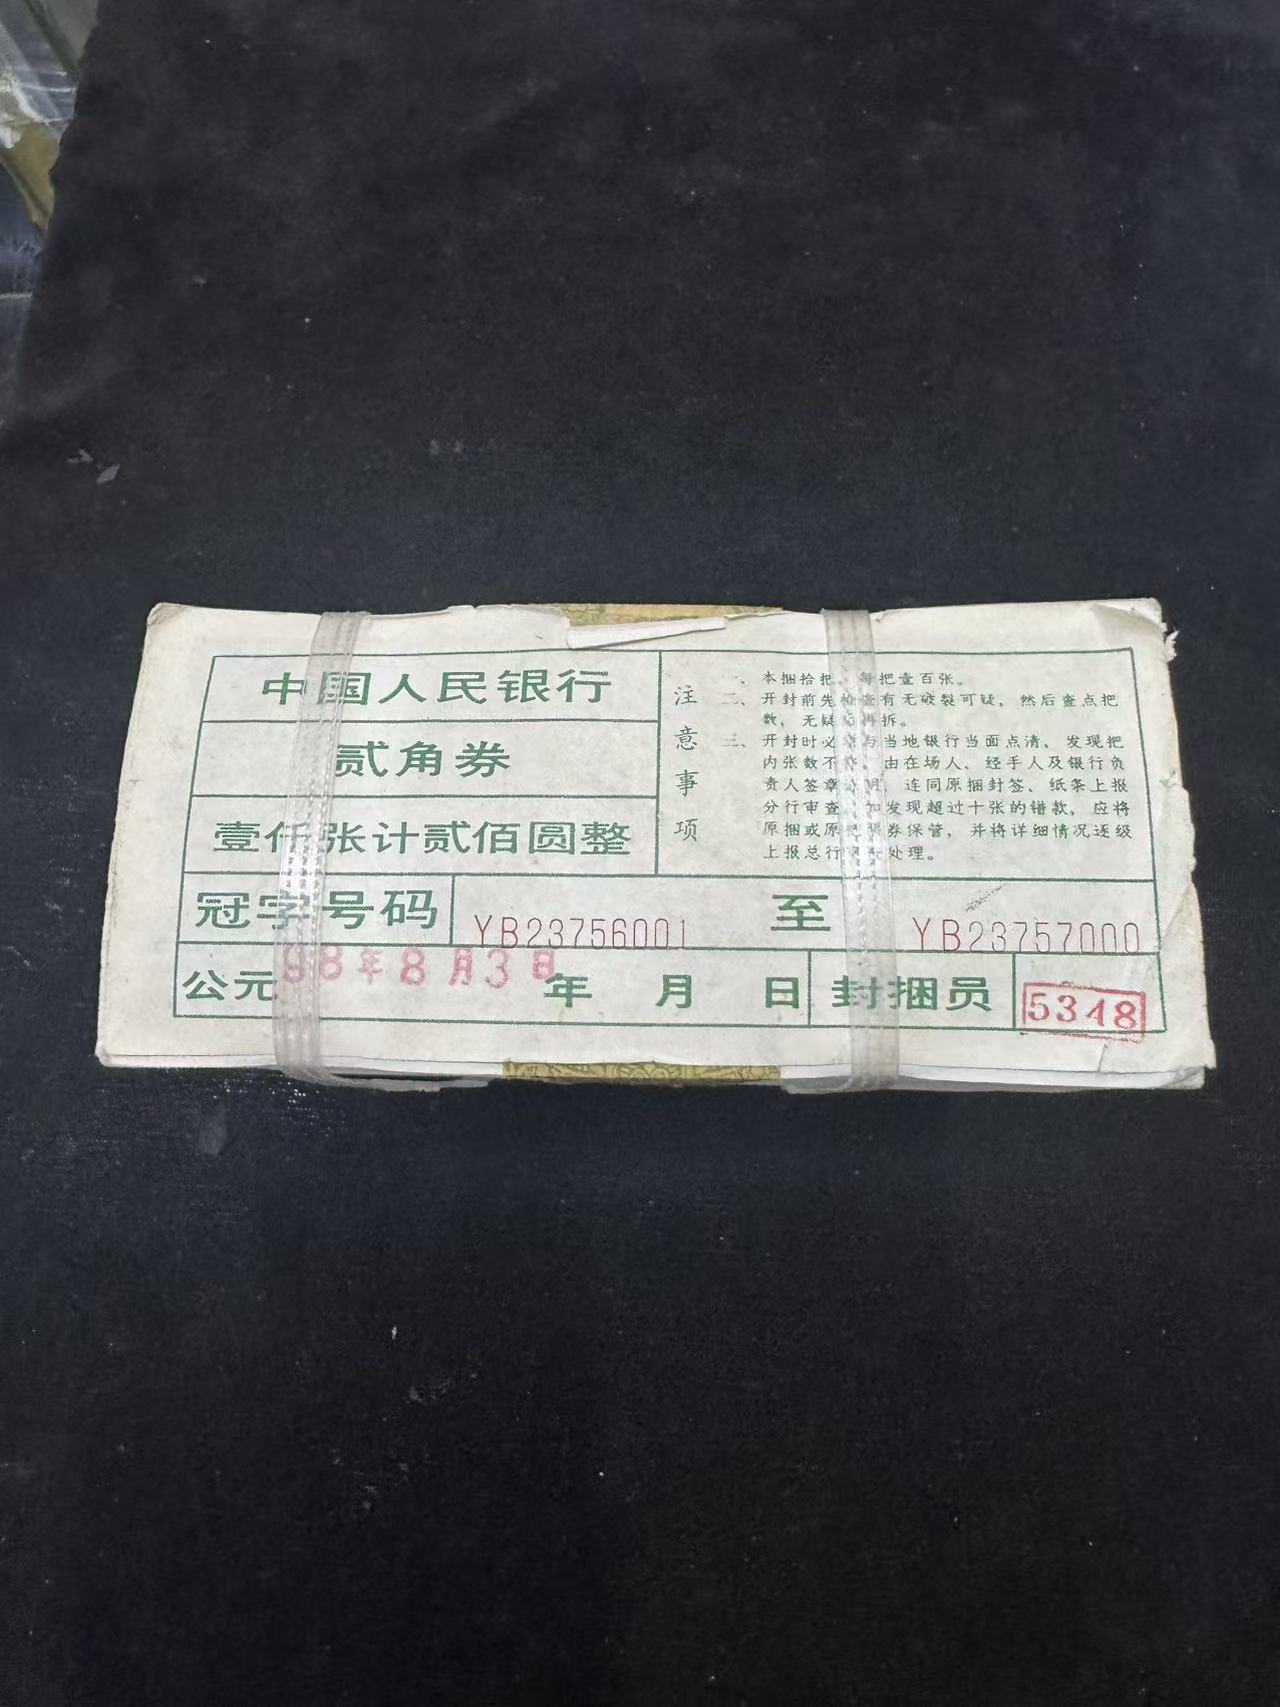 中国人民银行
贰角券
壹仟张计贰佰圆整
注意事项
一、本捆拾把、每把壹百张。
二、开封前先检查有无破裂可疑，然后查点把
数，无疑后再拆。
三、开封时必须与当地银行当面点清，发现把
内张数不符，由在场人、经手人及银行负
责人签章证明，连同原捆封签、纸条上报
分行审查，如发现超过十张的错款，应将
原捆或原把票券保管，并将详细情况逐级
上报总行 处理。
冠字号码 YB23756001 至 YB23757000
公元 年 月 日 封捆员 5348
98年8月3日